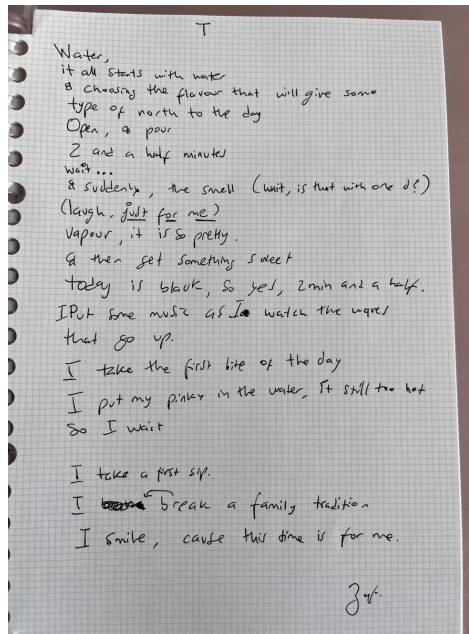 T
Water,
it all starts with water
& choosing the flavour that will give some
type of north to the day
Open, & pour
2 and a half minutes
wait...
& suddenly, the smell (wait, is that with one d?)
(laugh, just for me)
Vapour, it is so pretty.
& then get something sweet
today is black, so yes, 2min and a half.
I Put some music as I watch the waves
that go up.
I take the first bite of the day
I put my pinky in the water, It still too hot
So I wait
I take a first sip.
I break a family tradition
I smile, cause this time is for me.